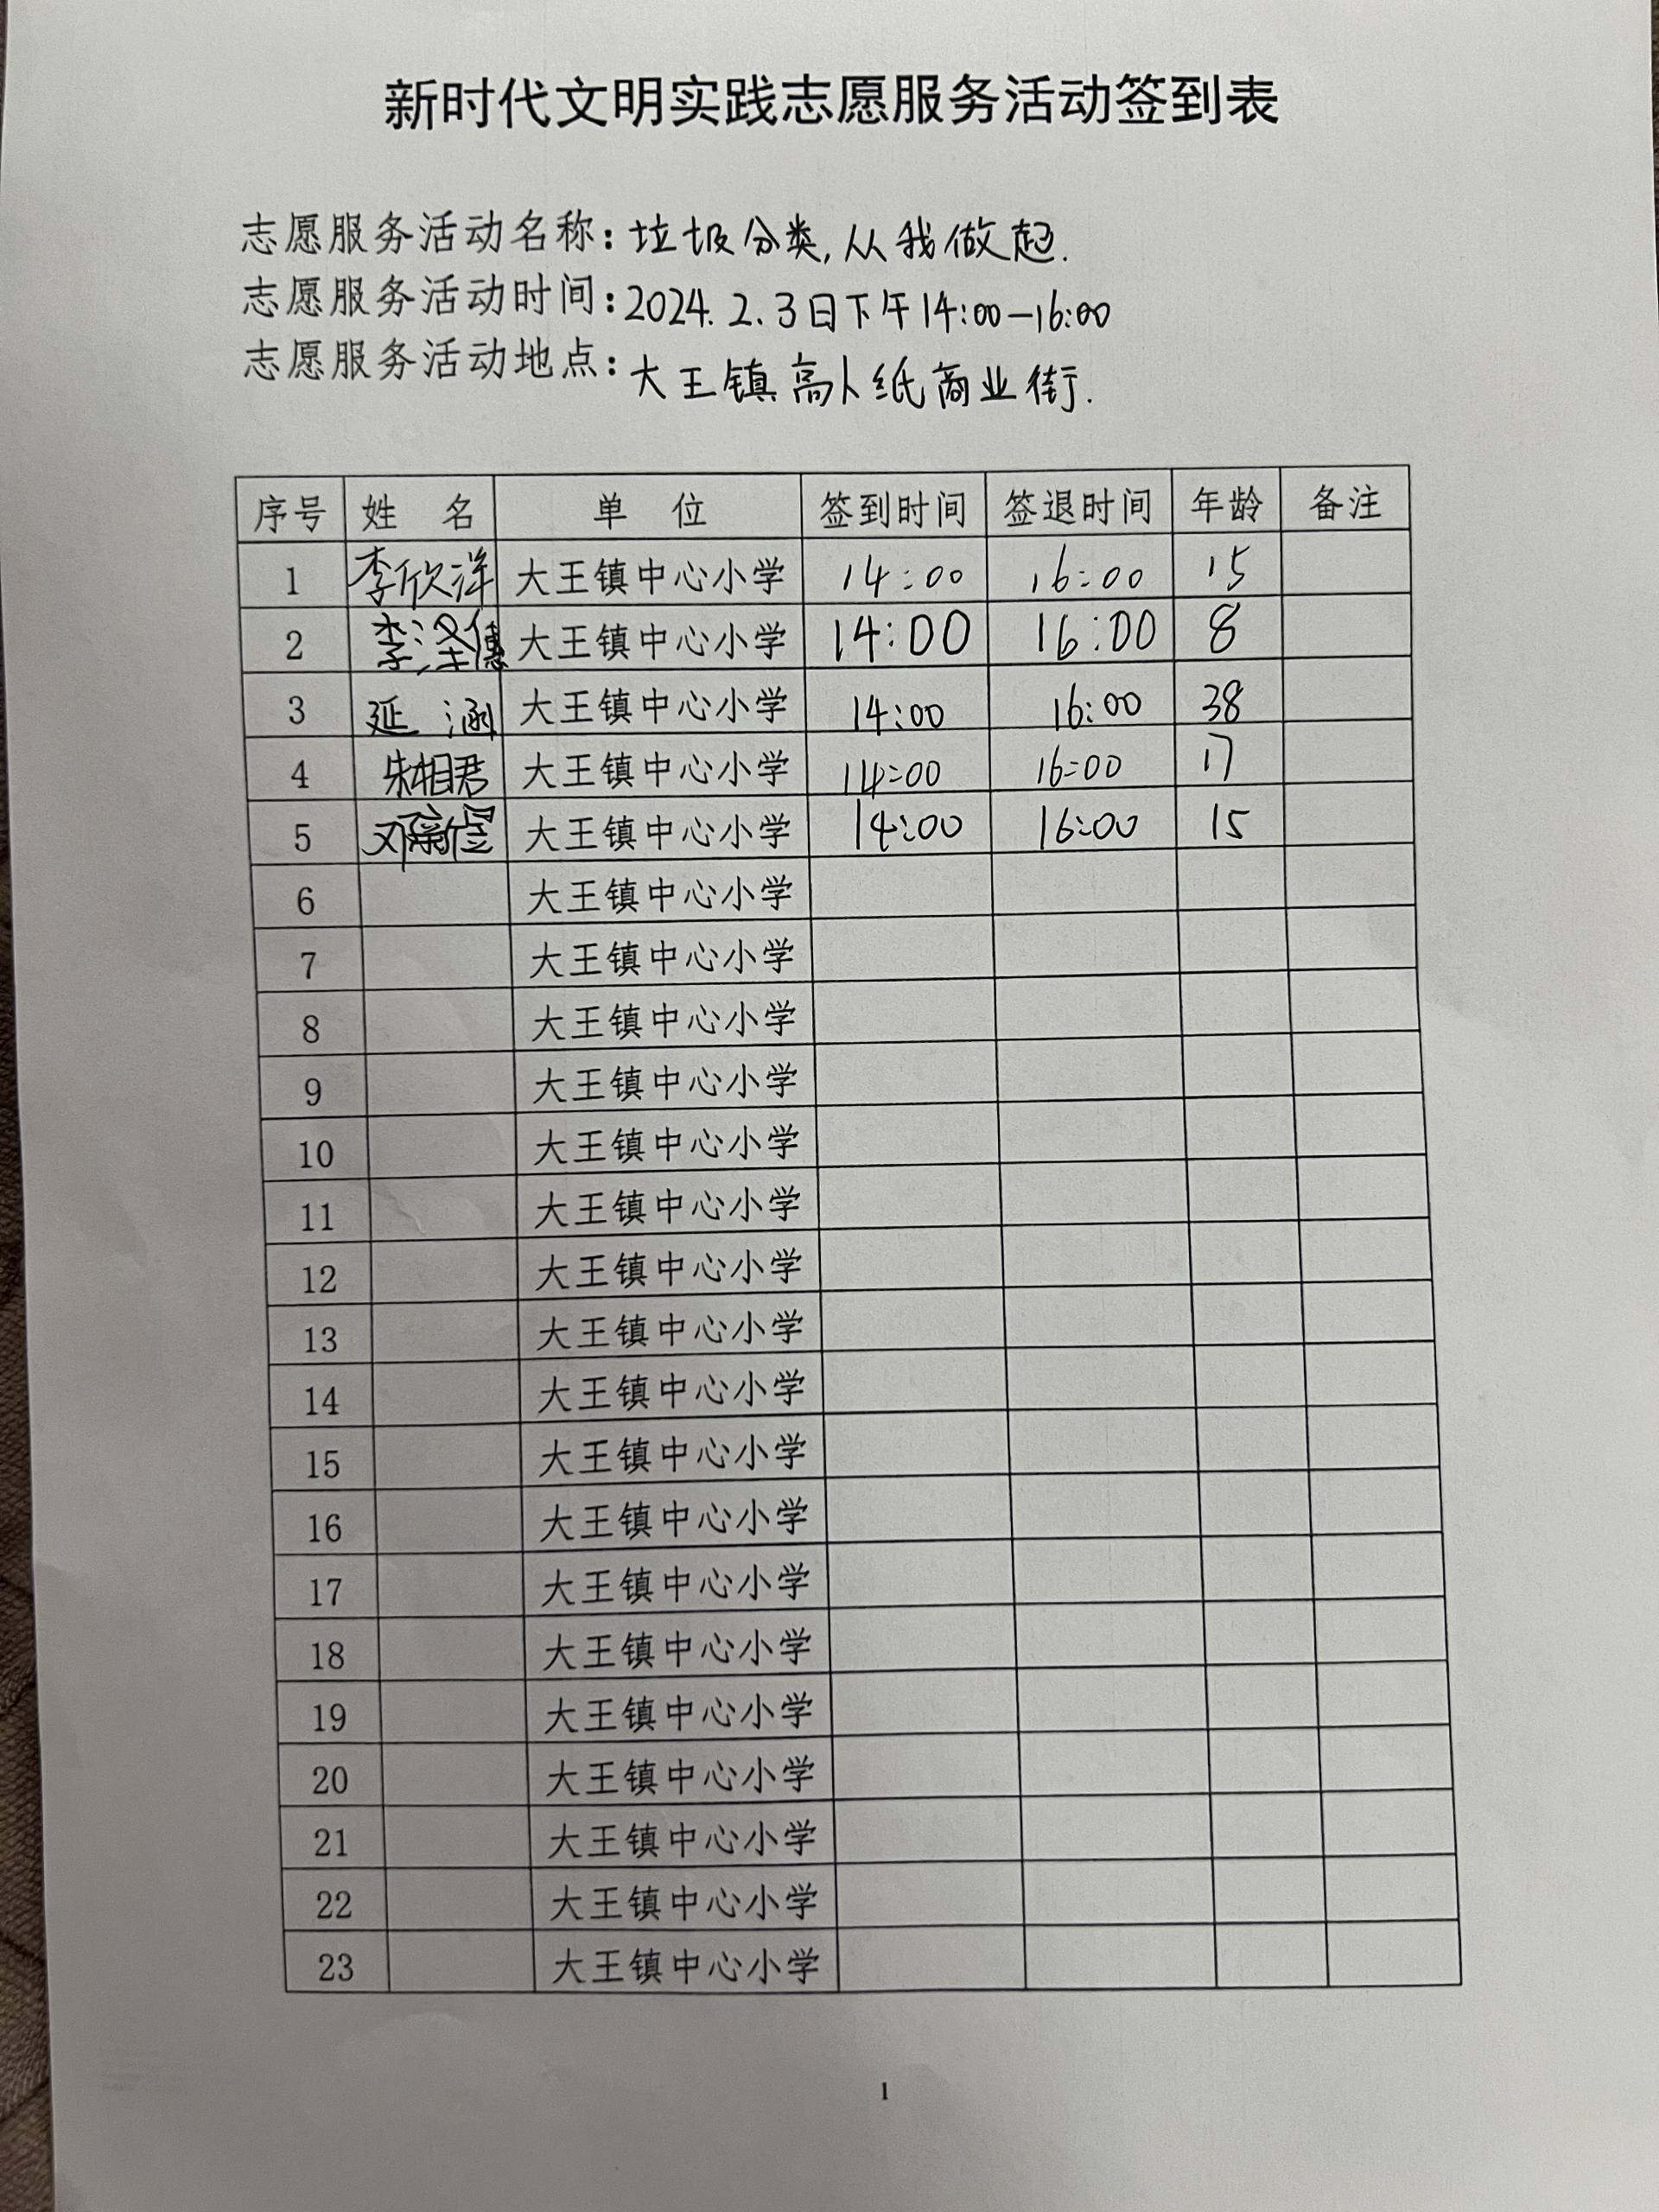 新时代文明实践志愿服务活动签到表
志愿服务活动名称：垃圾分类,从我做起.
志愿服务活动时间：2024.2.3日下午14:00—16:00
志愿服务活动地点：大王镇高卜纸商业街.
序号 姓 名 单 位 签到时间 签退时间 年龄 备注
1 李欣洋 大王镇中心小学 14:00 16:00 15
2 李泽 大王镇中心小学 14:00 16:00 8
3 延 涵 大王镇中心小学 14:00 16:00 38
4 朱相君 大王镇中心小学 14:00 16:00 17
5 邓 大王镇中心小学 14:00 16:00 15
6 大王镇中心小学
7 大王镇中心小学
8 大王镇中心小学
9 大王镇中心小学
10 大王镇中心小学
11 大王镇中心小学
12 大王镇中心小学
13 大王镇中心小学
14 大王镇中心小学
15 大王镇中心小学
16 大王镇中心小学
17 大王镇中心小学
18 大王镇中心小学
19 大王镇中心小学
20 大王镇中心小学
21 大王镇中心小学
22 大王镇中心小学
23 大王镇中心小学
1